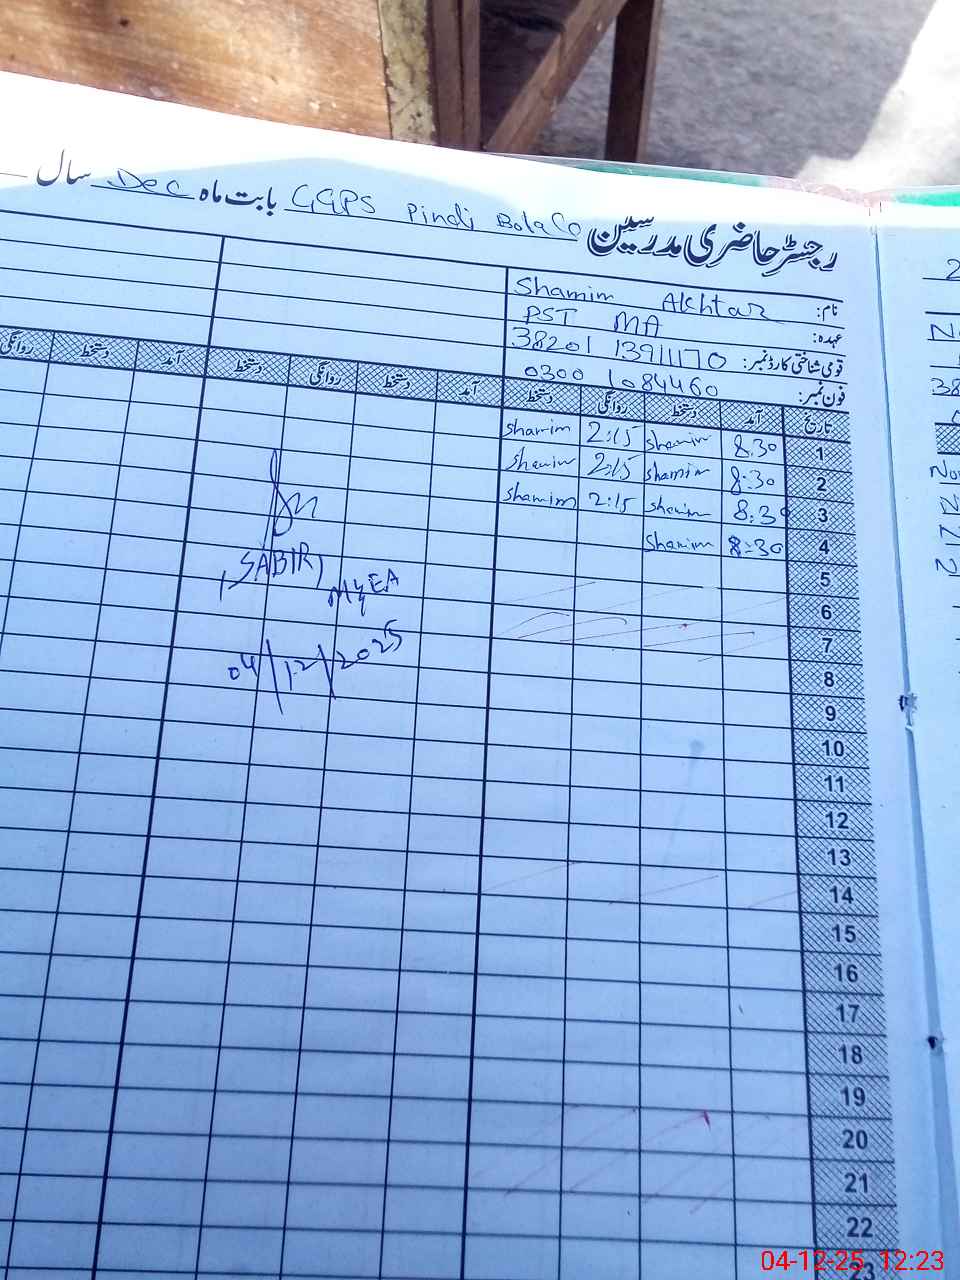 رجسٹر حاضری مدرسین GGPS Pindi Bola بابت ماہ Dec سال
نام: Shamim Akhtar
عہدہ: PST MA
قومی شناختی کارڈ نمبر: 38201 13911170
فون نمبر: 0300 1084460
تاریخ آمد دستخط روانگی دستخط آمد دستخط روانگی دستخط آمد دستخط روانگی
1 8:30 shamim 2:15 shamim
2 8:30 shamim 2:15 shamim
3 8:30 shamim 2:15 shamim
4 8:30 shamim
5
6
7
8
9
10
11
12
13
14
15
16
17
18
19
20
21
22
23
SABIR
MEA
04/12/2025
04-12-25 12:23